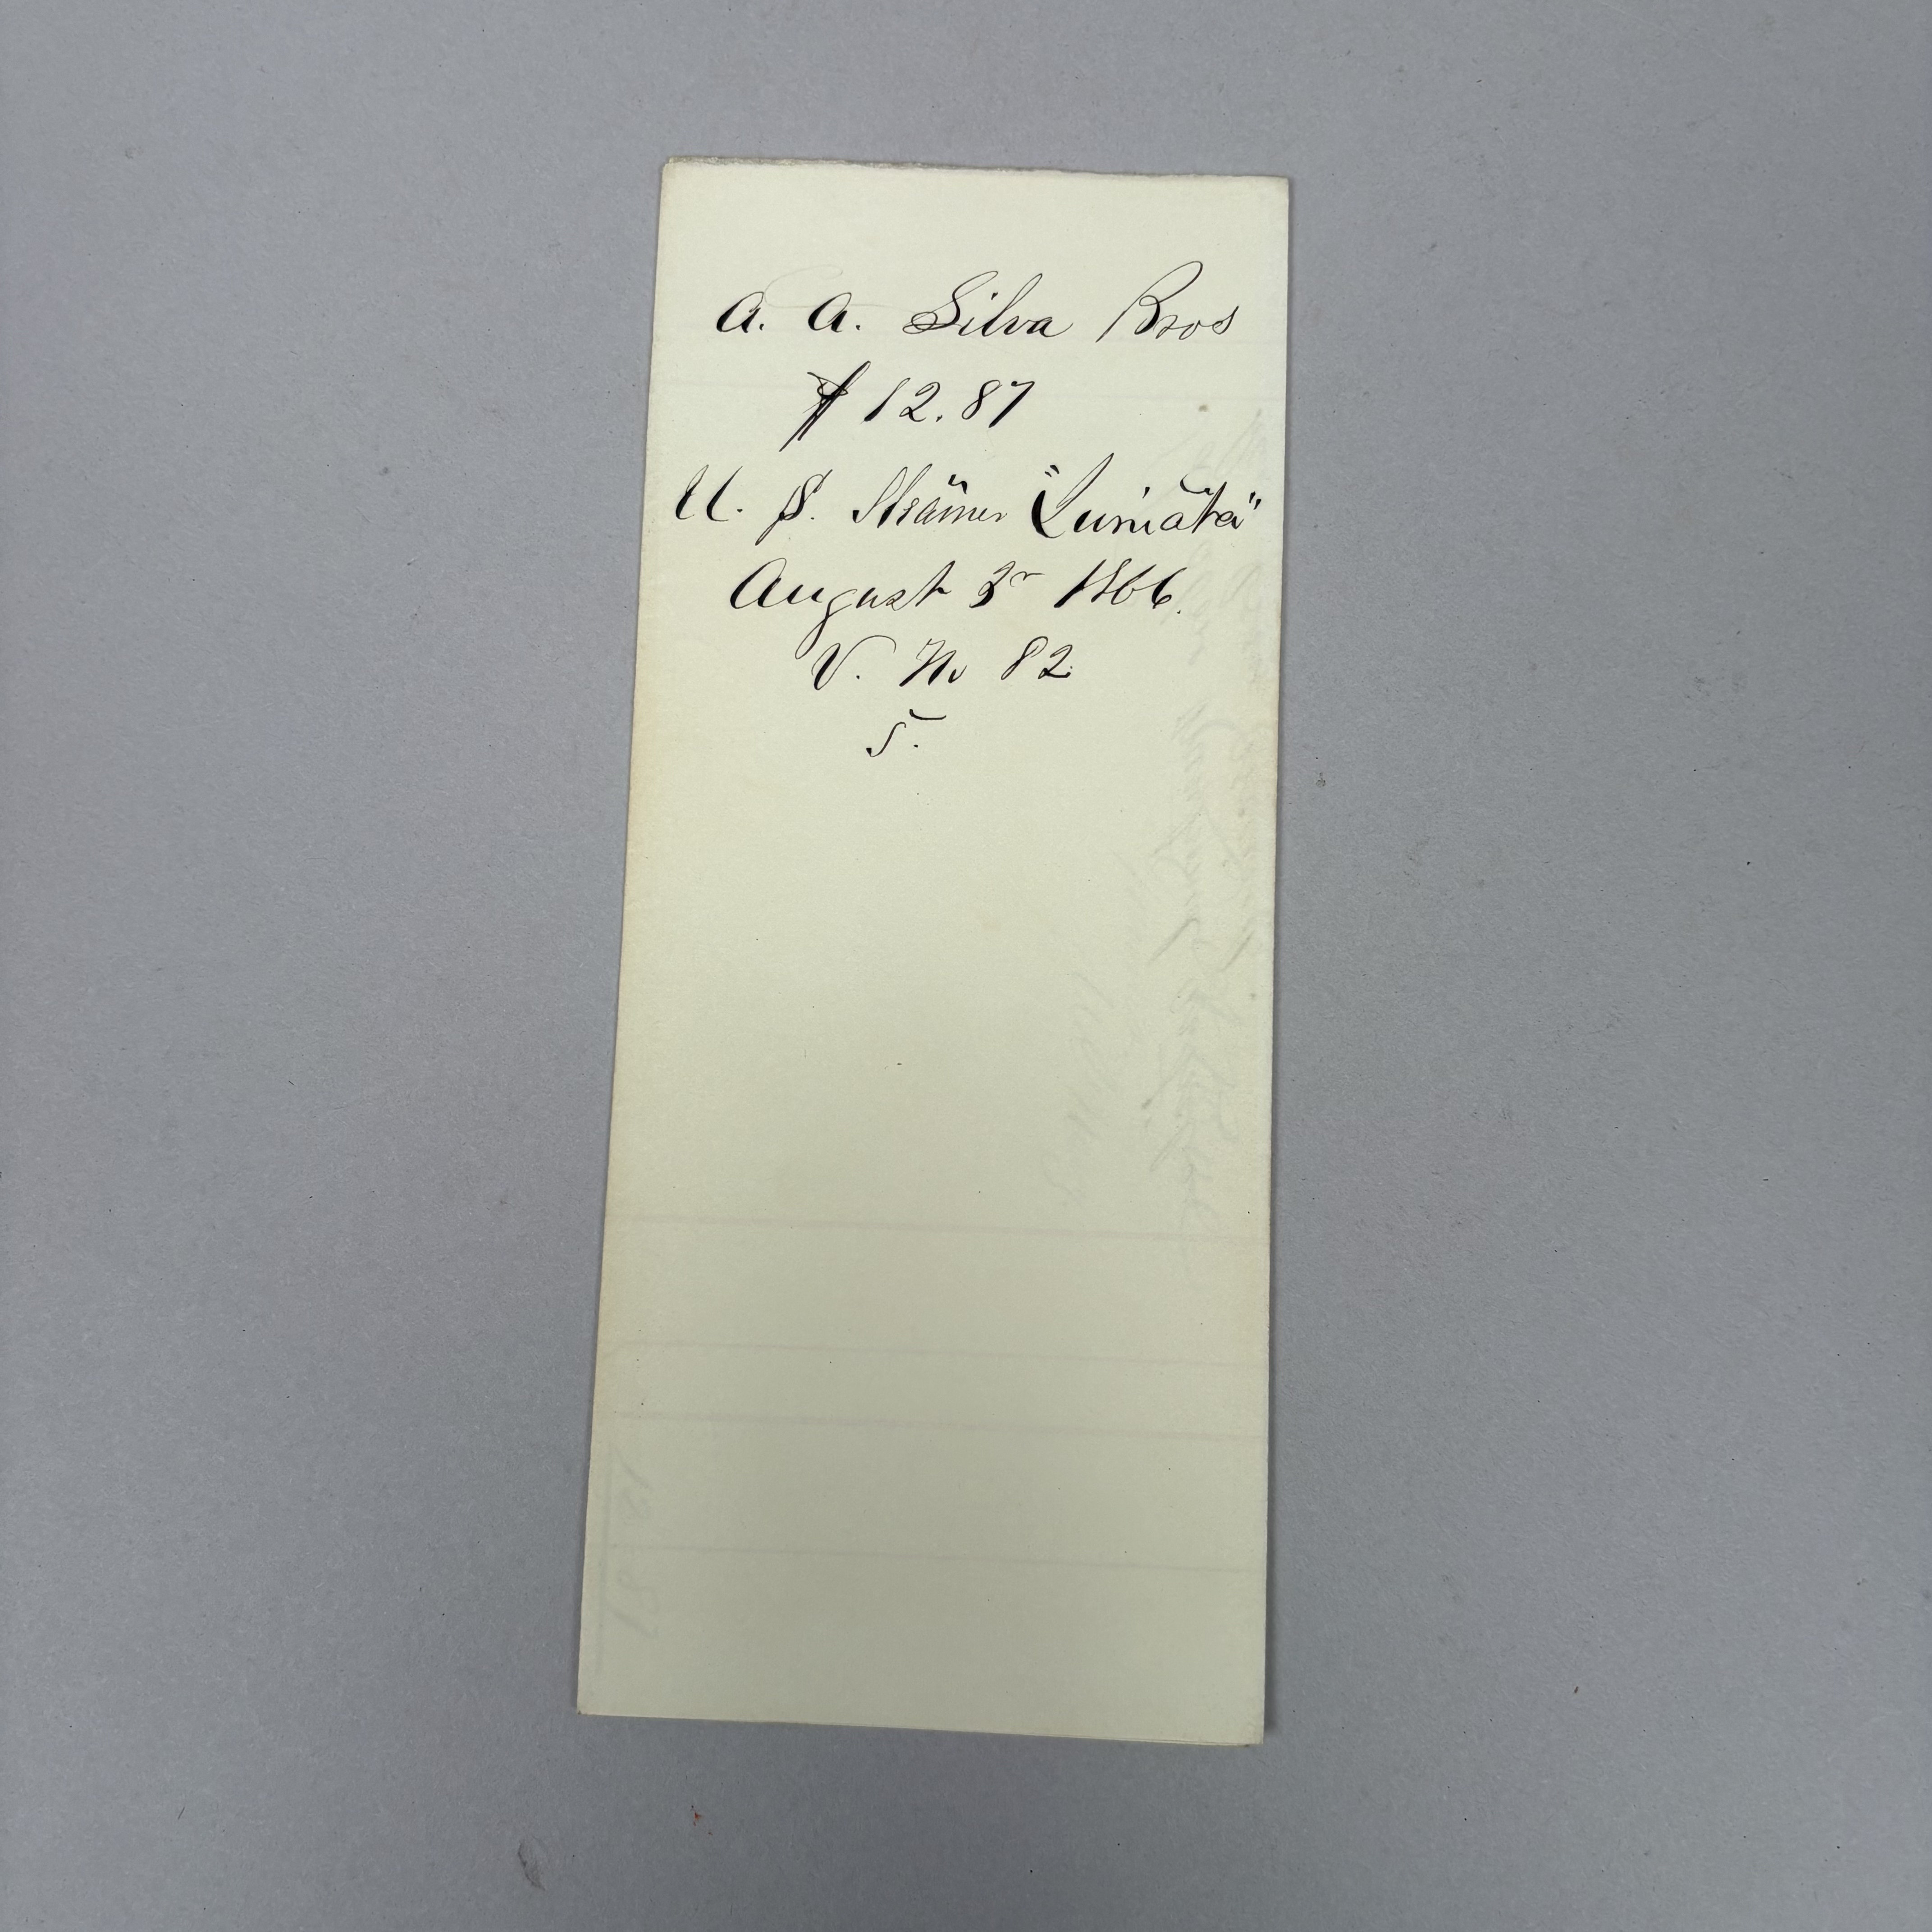 A. A. Silva Bros
$ 12.87
U. S. Steamer "Juniata"
August 3r 1866.
V. No 82
5.